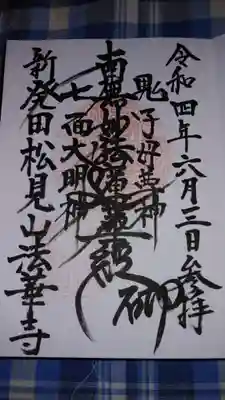 令和四年六月三日参拝
鬼子母善神
南無妙法蓮華経
七面大明神
新発田松見山法華寺